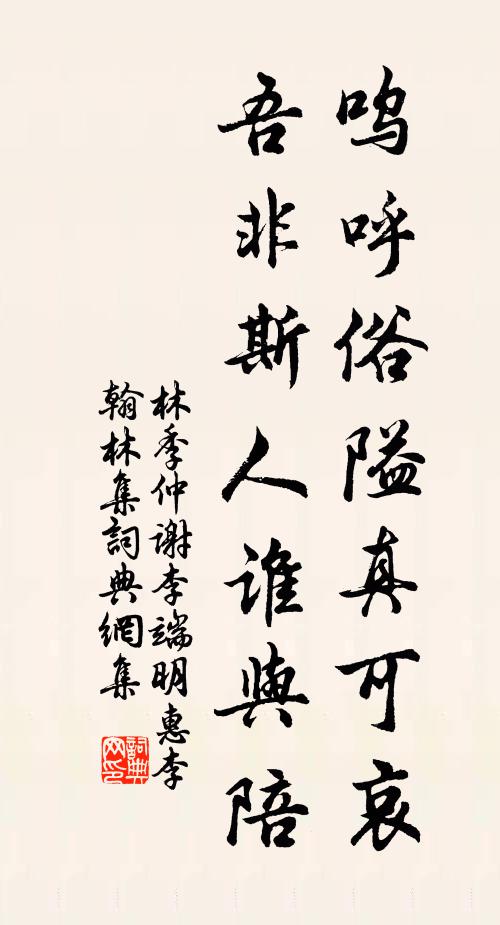 呜呼俗隘真可哀
吾非斯人谁與陪
林季仲谢李端明惠李
翰林集詞典網集
詞典网印